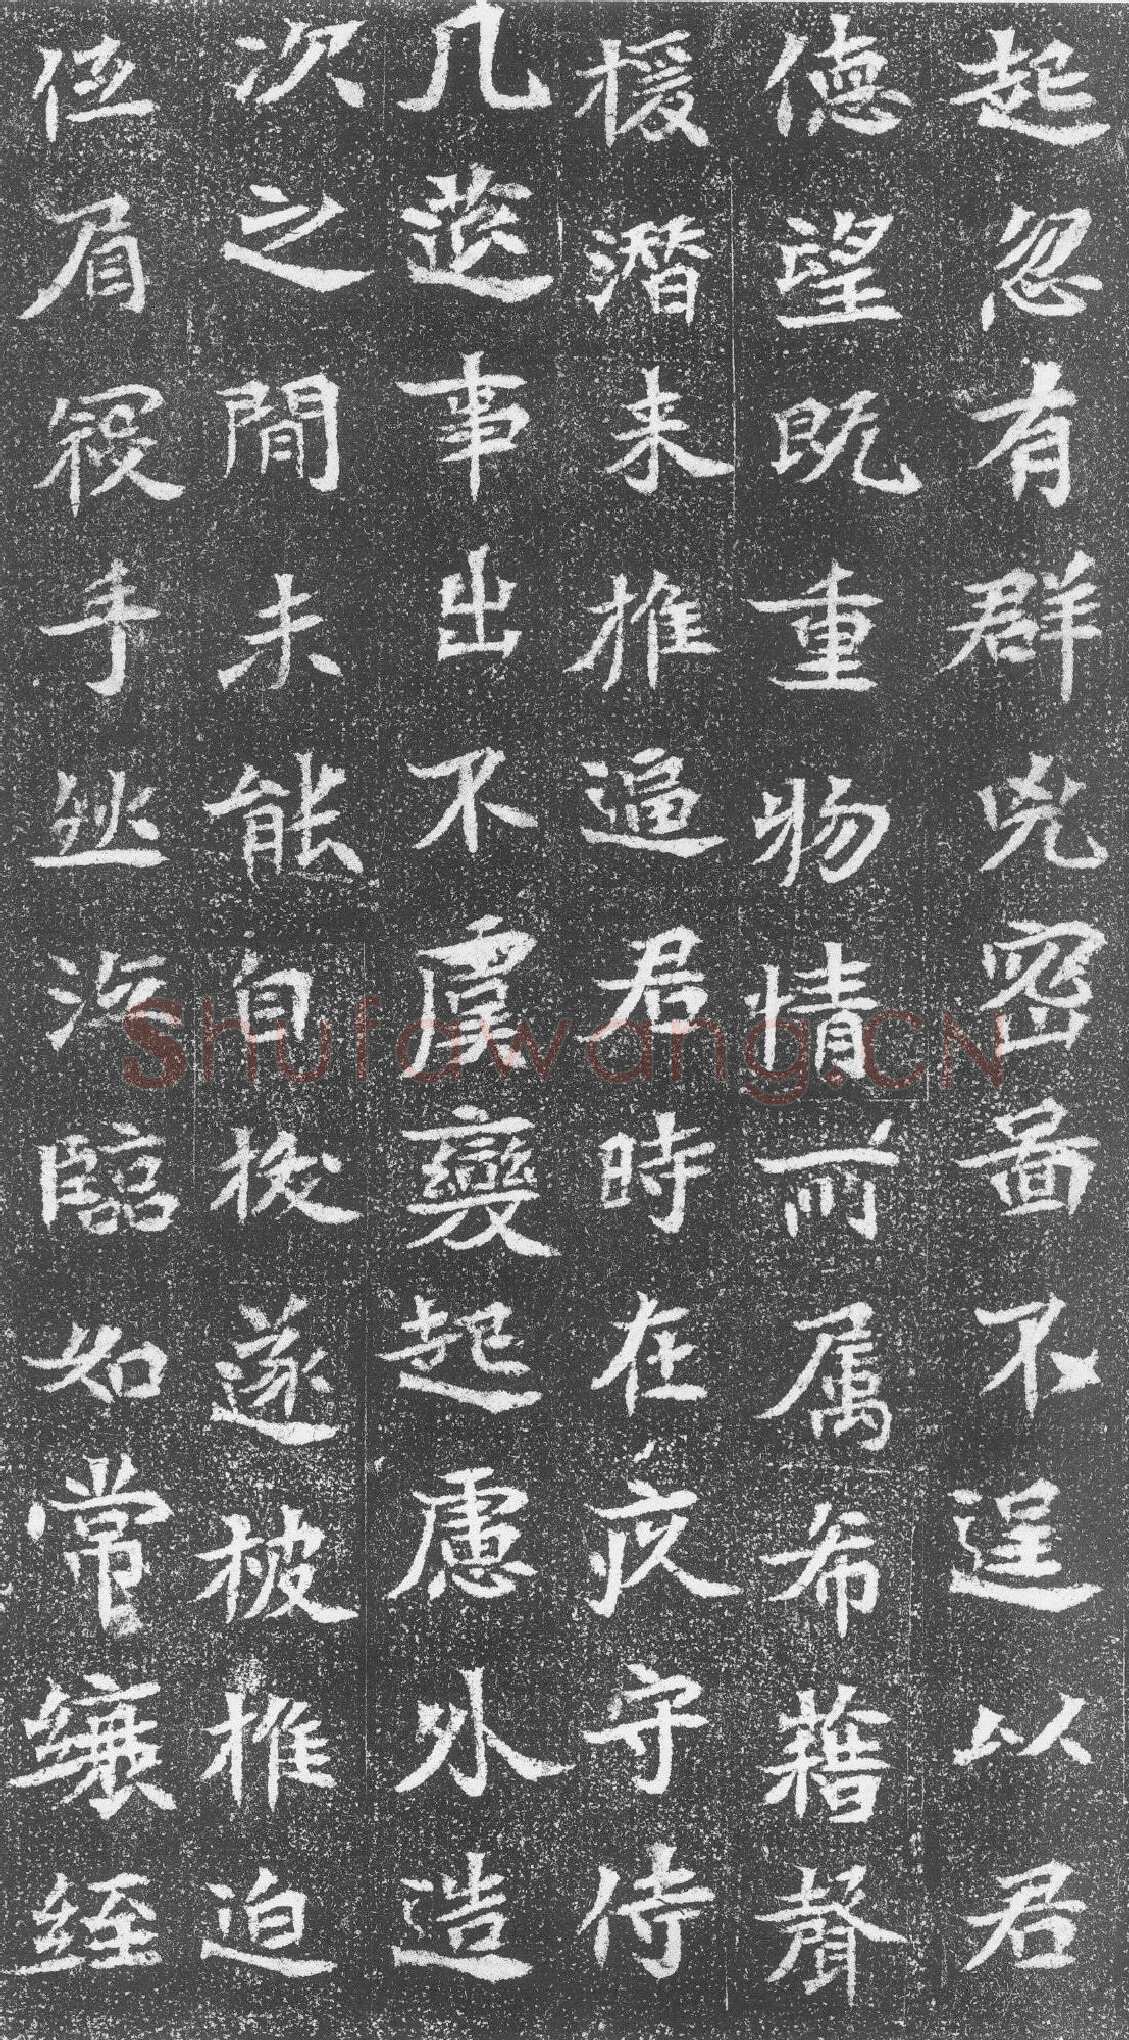 起忽有群兇密圖不逞以君
德望既重物情所属希藉聲
援潛来推逼君時在疚守侍
几筵事出不虞變起慮外造
次之間未能自拔遂被推迫
低眉寇手然泣臨如常縗絰
Shufawang.CN